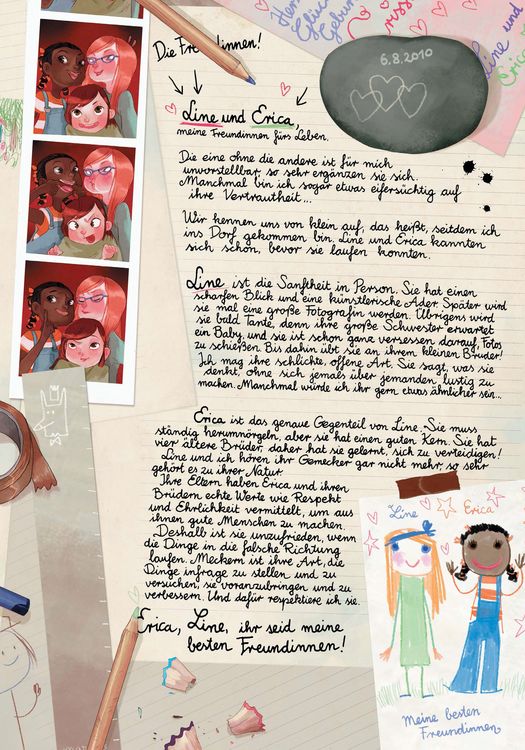 Die Freundinnen!
6.8.2010
Line und Erica,
meine Freundinnen fürs Leben.
Die eine ohne die andere ist für mich
unvorstellbar, so sehr ergänzen sie sich.
Manchmal bin ich sogar etwas eifersüchtig auf
ihre Vertrautheit...
Wir kennen uns von klein auf, das heißt, seitdem ich
ins Dorf gekommen bin. Line und Erica kannten
sich schon, bevor sie laufen konnten.
Line ist die Sanftheit in Person. Sie hat einen
scharfen Blick und eine künstlerische Ader. Später wird
sie mal eine große Fotografin werden. Übrigens wird
sie bald Tante, denn ihre große Schwester erwartet
ein Baby, und sie ist schon ganz versessen darauf, Fotos
zu schießen. Bis dahin übt sie an ihrem kleinen Bruder!
Ich mag ihre schlichte, offene Art. Sie sagt, was sie
denkt, ohne sich jemals über jemanden lustig zu
machen. Manchmal würde ich ihr gern etwas ähnlicher sein...
Erica ist das genaue Gegenteil von Line. Sie muss
ständig herumnörgeln, aber sie hat einen guten Kern. Sie hat
vier ältere Brüder, daher hat sie gelernt, sich zu verteidigen!
Line und ich hören ihr Gemecker gar nicht mehr, so sehr
gehört es zu ihrer Natur.
Ihre Eltern haben Erica und ihren
Brüdern echte Werte wie Respekt
und Ehrlichkeit vermittelt, um aus
ihnen gute Menschen zu machen.
Deshalb ist sie unzufrieden, wenn
die Dinge in die falsche Richtung
laufen. Meckern ist ihre Art, die
Dinge infrage zu stellen und zu
versuchen, sie voranzubringen und zu
verbessern. Und dafür respektiere ich sie.
Erica, Line, ihr seid meine
besten Freundinnen!
Line Erica
Meine besten
Freundinnen